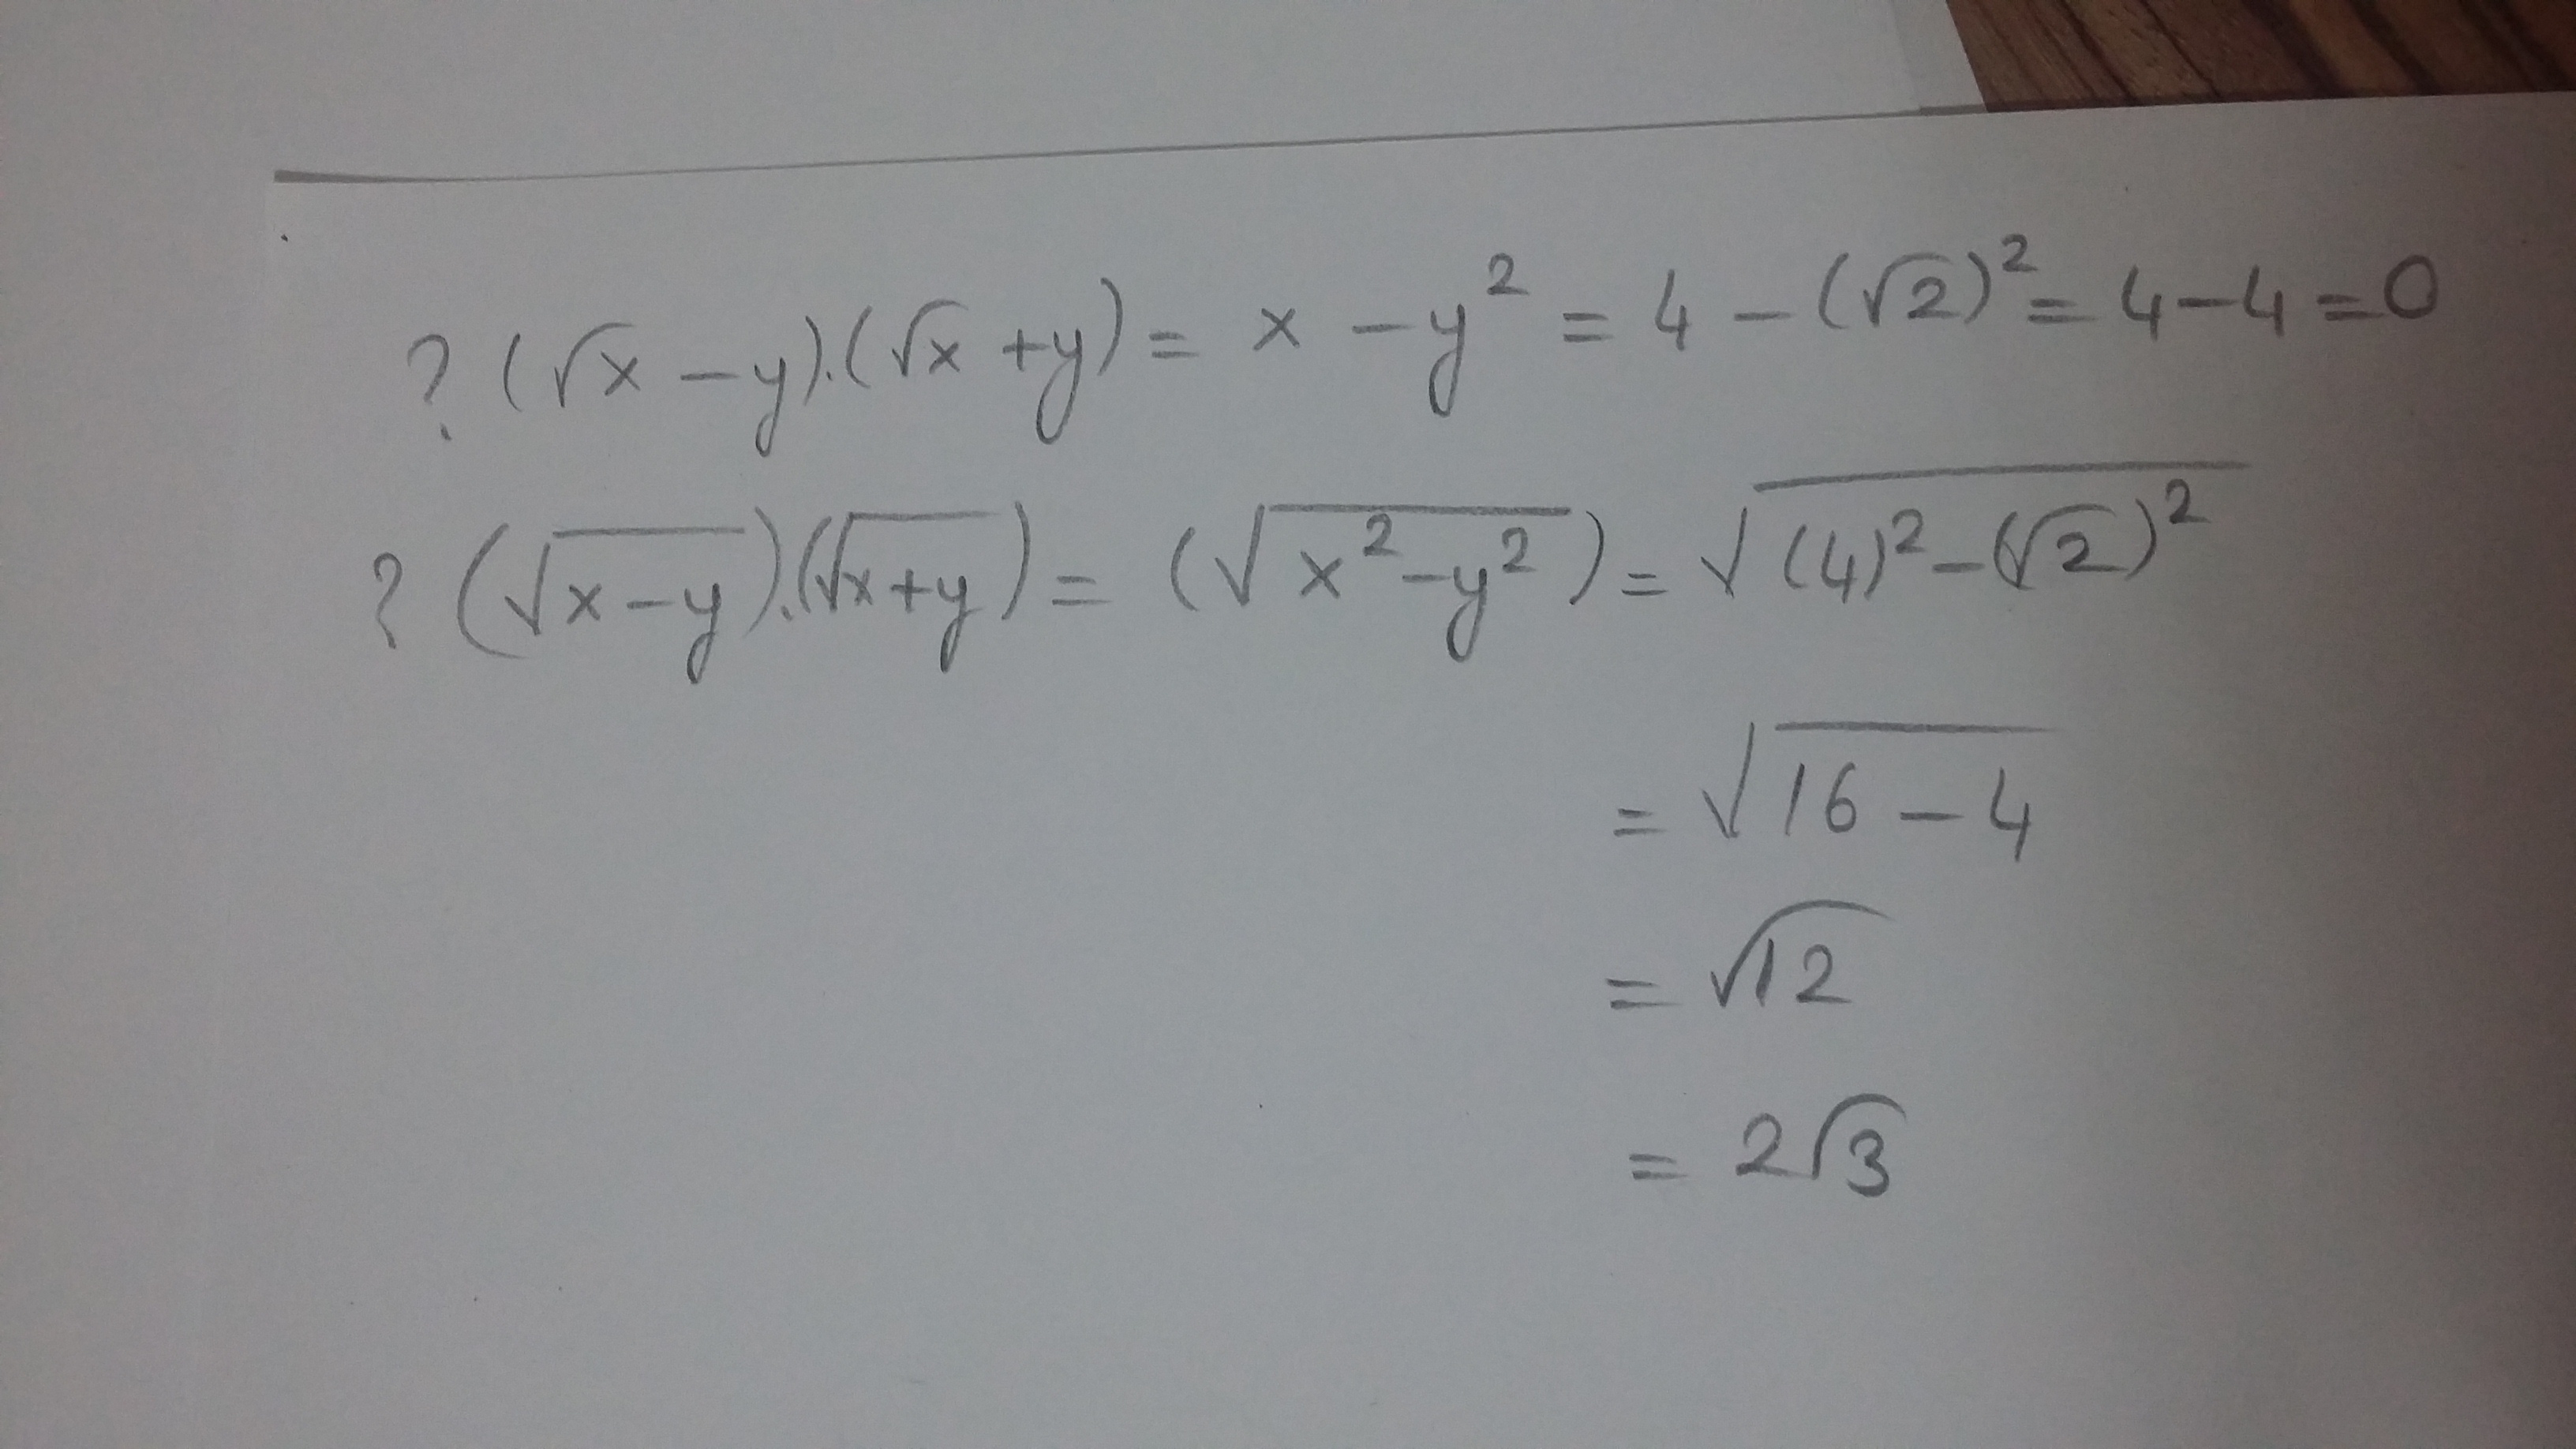 ? (√x − y).(√x + y) = x − y² = 4 − (√2)² = 4 − 4 = 0
? (√(x−y)).(√(x+y)) = (√(x²−y²)) = √((4)²−(√2)²)
= √(16 − 4)
= √12
= 2√3